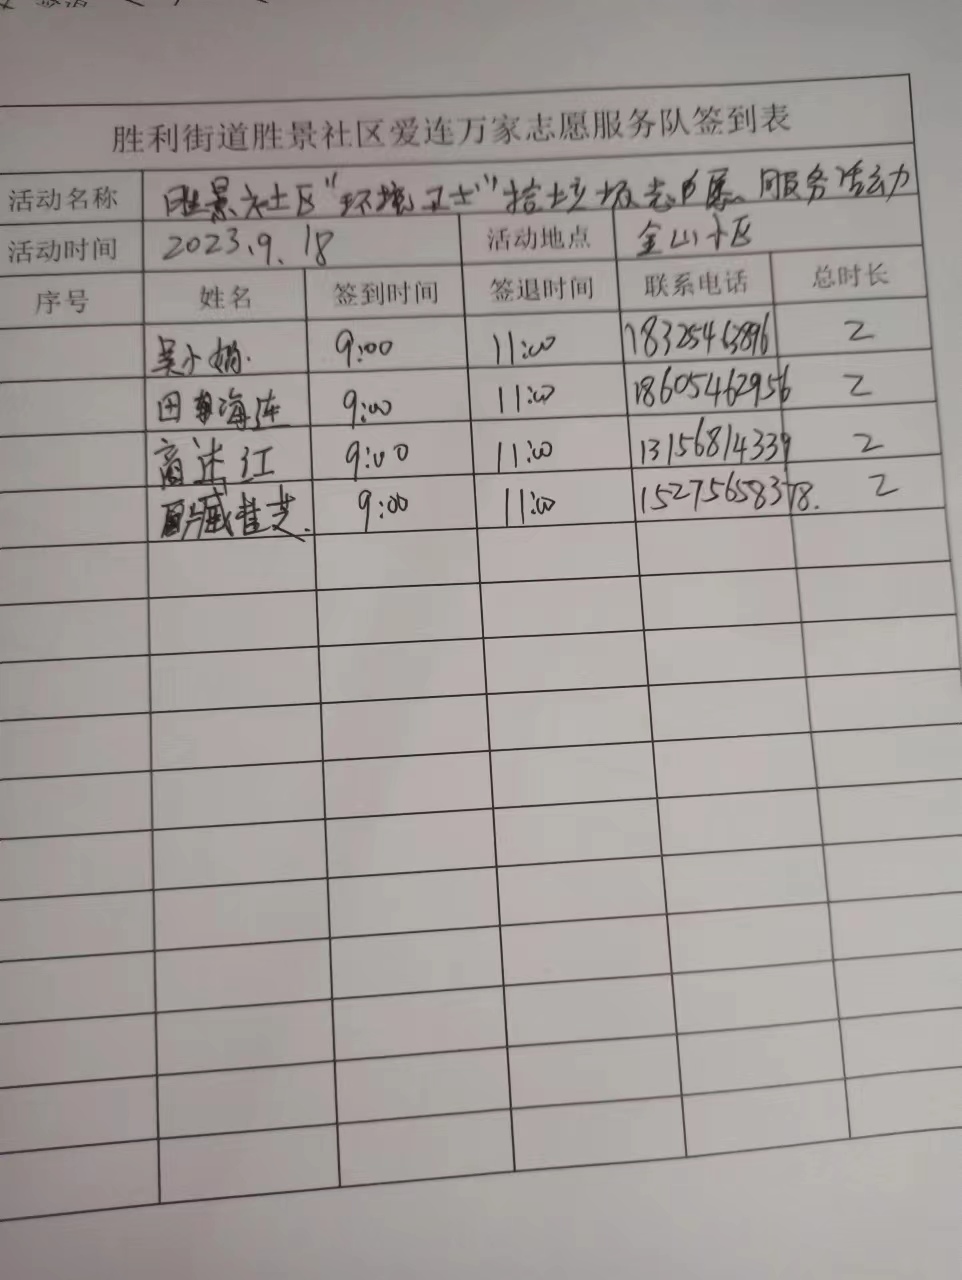 胜利街道胜景社区爱连万家志愿服务队签到表
活动名称 胜景社区"环境卫士"捡垃圾志愿服务活动
活动时间 2023.9.18 活动地点 金山小区
序号 姓名 签到时间 签退时间 联系电话 总时长
吴小娟. 9:00 11:00 18325463896 2
田海连 9:00 11:00 18605462956 2
高法江 9:00 11:00 13156814339 2
臧桂芝. 9:00 11:00 15275658378. 2